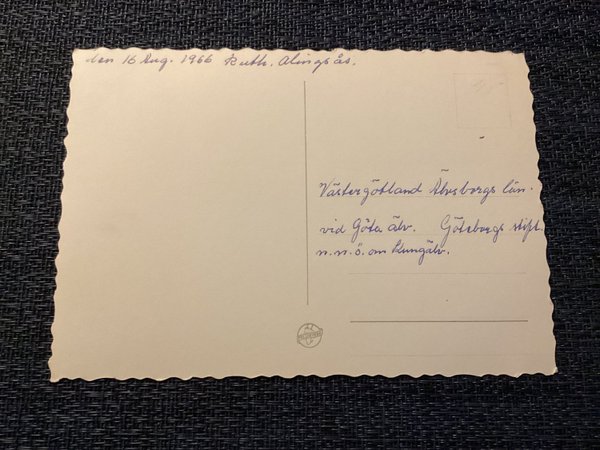 den 16 Aug. 1966 Ruth. Alingsås.
Västergötland Älvsborgs län.
vid Göta älv. Göteborgs stift.
n.n.ö. om Kungälv.